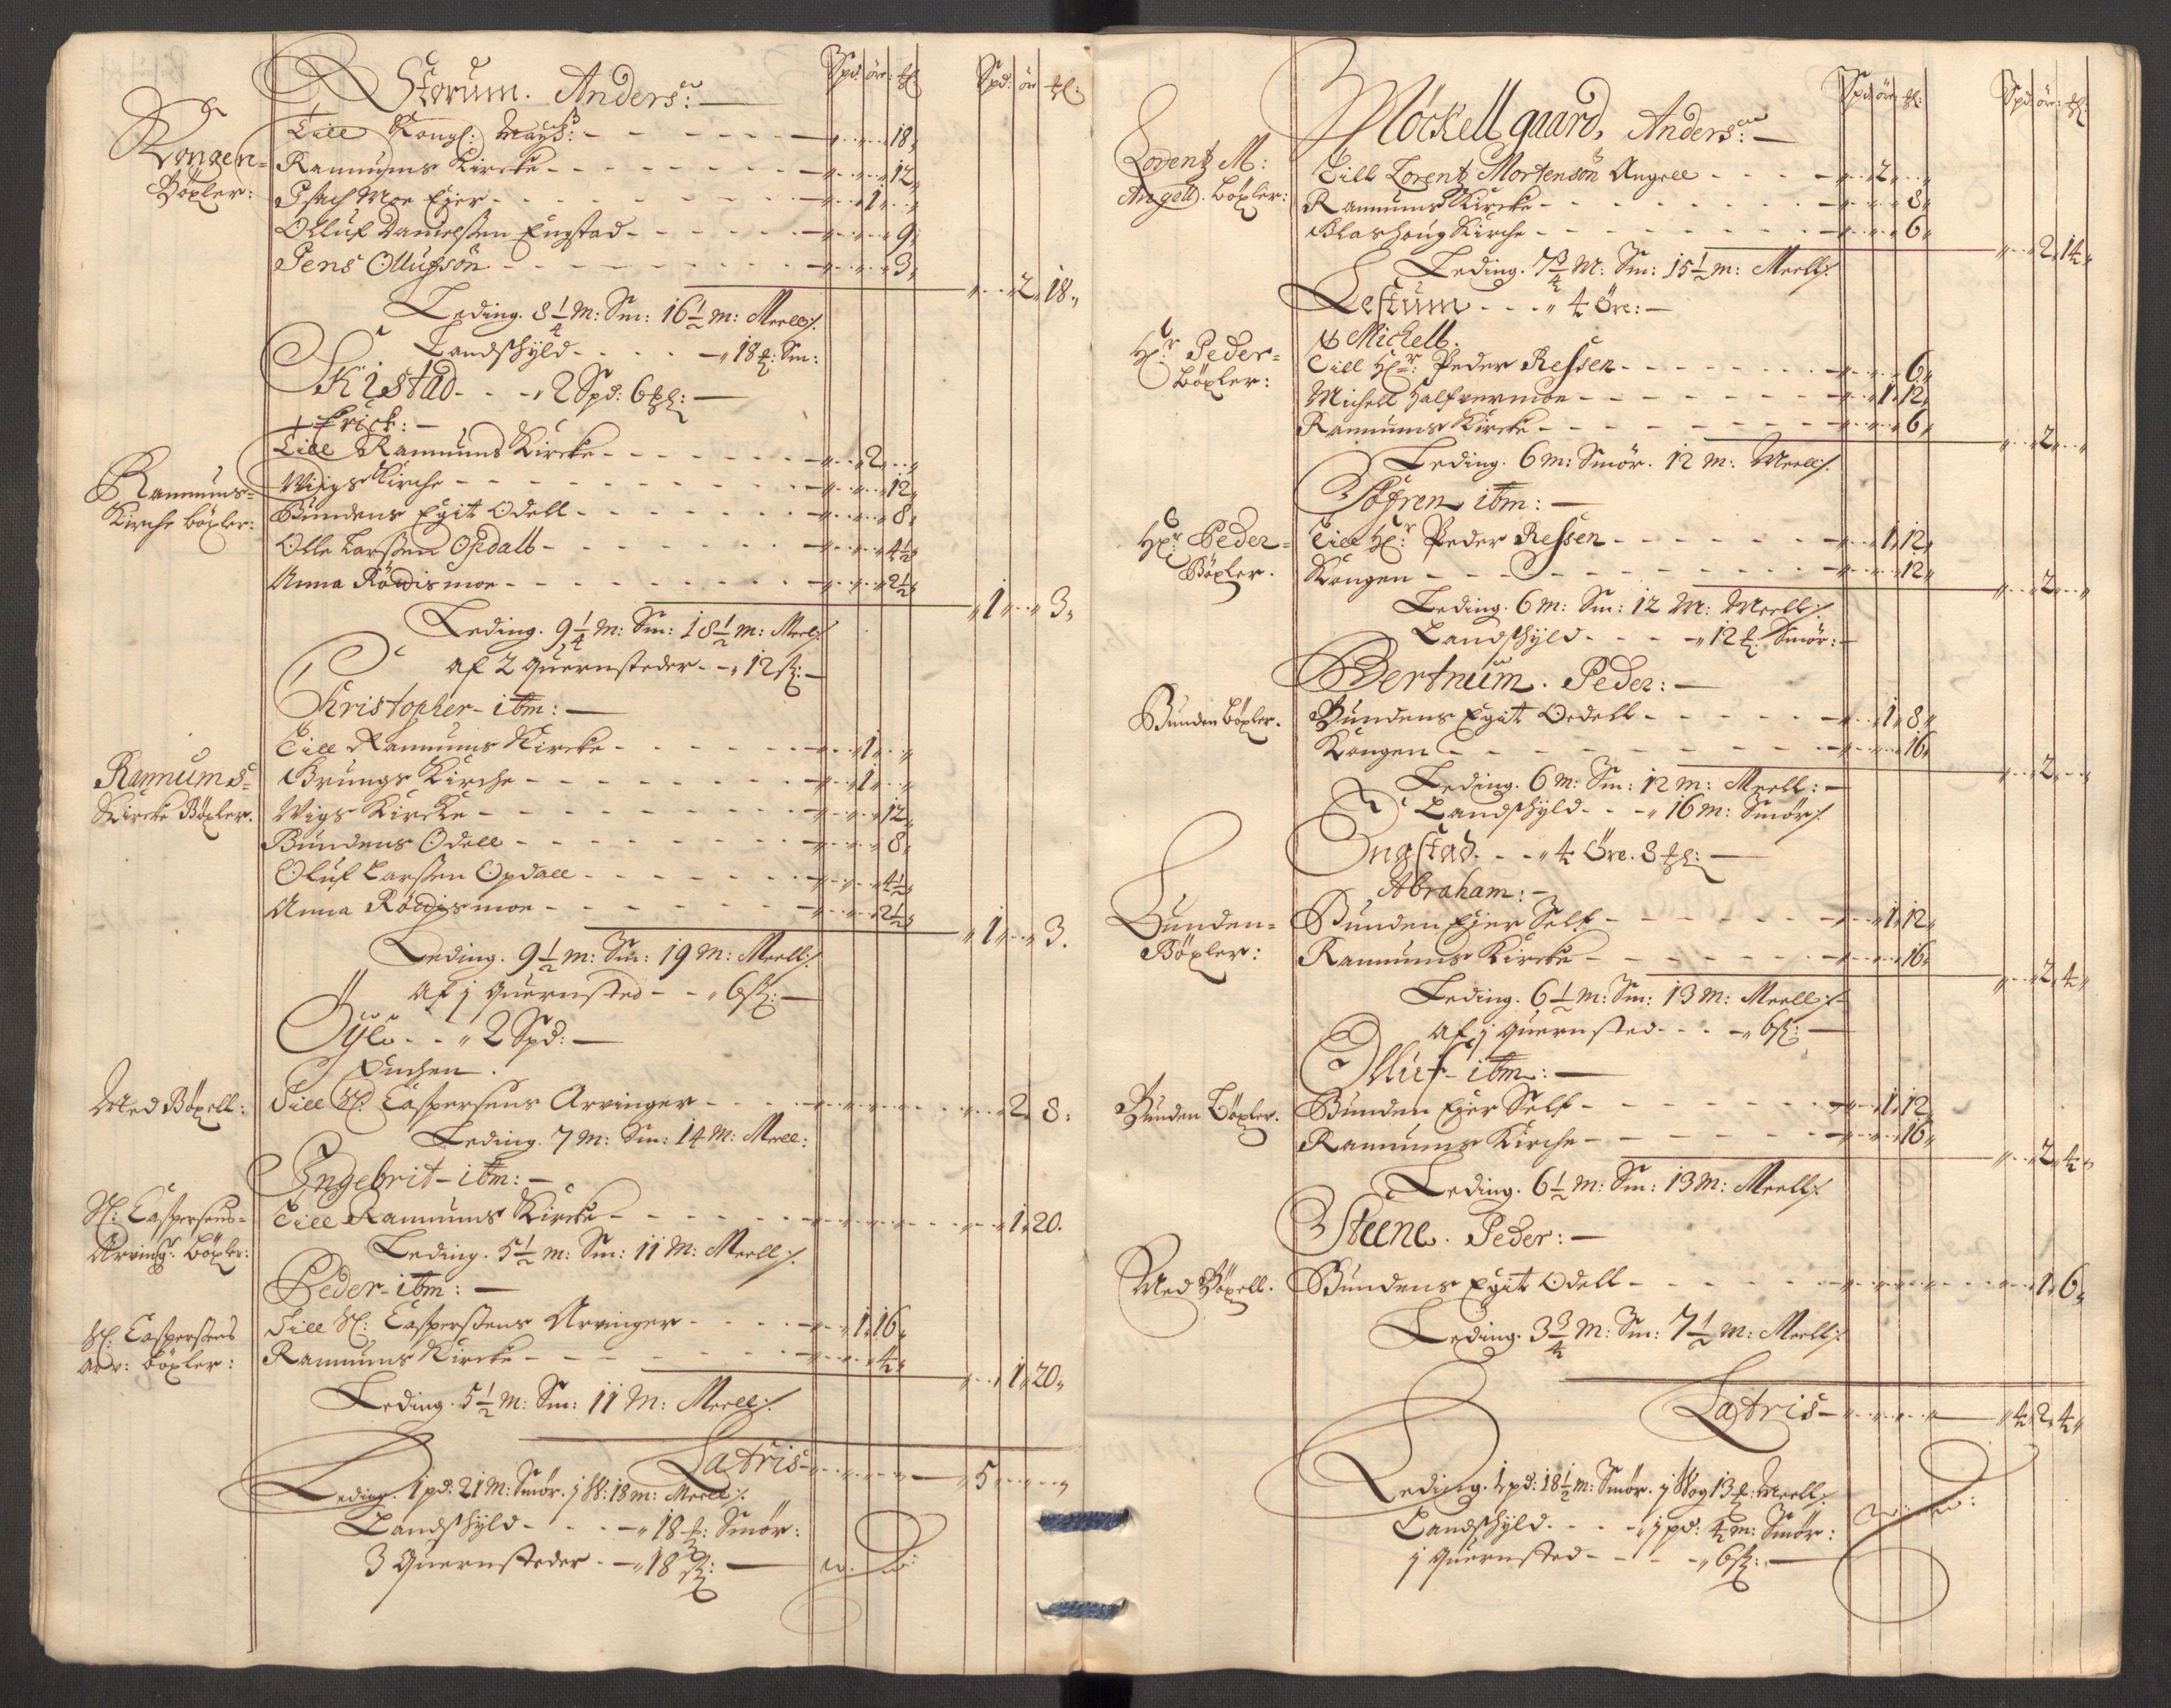 Spd: öre: ℔:
Spd: ör ℔:
Storum. Anders:
Kongen-
Böxler:
Till Kongl: Mayss: - - - - 18,,
Rannums Kircke - - - - 12,,
Isach Moe Ejer - - - - 1,,
Olluf Danielssen Engstad - - - - 9,,
Jens Ollufsön - - - - 3,,
2,, 18,,
Leding. 8 1/4 m: Sm: 16 1/2 m: Meell:/.
Landschyld - - - 18 ℔: Sm:
Skistad - - - 2 Spd: 6 ℔:
+ Erick:
Rannums-
Kirche böxler:
Till Rannums Kircke - - - - 2,,
Wiigs Kirche - - - - 12,,
Bundens Egit Odell - - - - 8,,
Olle Larssen Opdall - - - - 4 1/2,,
Anna Rödismoe - - - - 2 1/2,,
1,, 3,,
Leding. 9 1/4 m: Sm: 18 1/2 m: Meel:/
af 2 Quernsteder - - 12 sk:
Christopher - itm:
Rannums-
Kircke Böxler.
Till Rannums Kircke - - - - 1,,
Brungs Kirche - - - - 1,,
Wigs Kircke - - - - 12,,
Bundens Odell - - - - 8,,
Oluf Larssen Opdall - - - - 4 1/2,,
Anna Rödismoe - - - - 2 1/2,,
1,, 3.
Leding. 9 1/2 m: Sm: 19 m: Meell:/
af j Quernsted - - 6 sk:
Öÿe - - 2 Spd:
Enchen.
Med Böxell:
Till Sl: Caspersens Arvinger - - - - 2,, 8:
Leding. 7 m: Sm: 14 m: Meel:
Ingebrit - itm:
Sl: Caspersens-
Arving: böxler:
Till Rannums Kircke - - - - 1,, 20.
Leding. 5 1/2 m: Sm: 11 m: Meell:/.
Peder - itm:
Sl: Caspersens
arv: böxler:
Till Sl: Caspersens Arvinger - - - - 1,, 16,,
Rannums Kircke - - - - 4,,
1,, 20,,
Leding. 5 1/2 m: Sm: 11 m: Meell:/.
Latris - - - - 5,,
Leding. 1 pd: 21 m: Smör. j W: 18 m: Meell:/.
Landschyld - - - 18 ℔: Smör:
3 Quernsteder - - 18 sk:
Spd: öre: ℔:
Spd: öre: ℔:
Möckellgaard, Anders:
Lorentz M:
Angell. böxler:
Till Lorentz Mortensön Angell - - - - 2,,
Rannums Kircke - - - - 8,,
Blashoug Kirche - - - - 6,,
2,, 14,,
Leding. 7 3/4 m: Sm: 15 1/2 m: Meell:/.
Lestum - - - 4 Öre:
Michell.
Hr: Peder-
böxler:
Till Hr: Peder Ressen - - - - 6,,
Michell Halfvermoe - - - - 1,, 12,,
Rannums Kircke - - - - 6,,
2,,
Leding. 6 m: Smör. 12 m: Meell:/.
Söfren itm:
Hr: Peder-
Böxler.
Till Hr: Peder Ressen - - - - 1,, 12,,
Kongen - - - - 12,,
2,,
Leding. 6 m: Sm: 12 m: Meell:/.
Landschyld - - - 12 ℔. Smör:
Bertnum. Peder:
Bunden böxler.
Bundens Egit Oedell - - - - 1,, 8,,
Kongen - - - - 16,,
2,,
Leding. 6 m: Sm: 12 m: Meell:
Landschyld - - - 16 m: Smör:/.
Engstad - - - 4 Öre. 8 ℔:
Abraham:
Bunden-
Böxler:
Bunden Ejer Self - - - - 1,, 12,,
Rannums Kircke - - - - 16,,
2,, 4,,
Leding. 6 1/2 m: Sm: 13 m: Meell:/.
af j Quernsted - - - 6 sk:
Olluf - itm:
Bunden Böxler.
Bunden Ejer Self - - - - 1,, 12,,
Rannums Kirche - - - - 16,,
2,, 4,,
Leding. 6 1/2 m: Sm: 13 m: Meell:/.
Steene. Peder:
Med Böxell.
Bundens Egit Odell - - - - 1,, 6,,
Leding. 3 3/4 m: Sm: 7 1/2 m: Meell:/.
Latris - - - - 4,, 2,, 4,,
Leding. 1 pd: 18 1/2 m: Smör. j Wog 13 ℔: Meell:/.
Landschyld - - - j pd: 4 m: Smör:
j Quernsted - - - 6 sk: